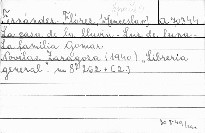 Fernández-Flórez, (Wenceslao) a 30344
La casa de la lluvia. - Luz de luna
La familia Gomar.
Novelas. Zaragoza (1940) "Librería
general". in 8º 262 + (2.)